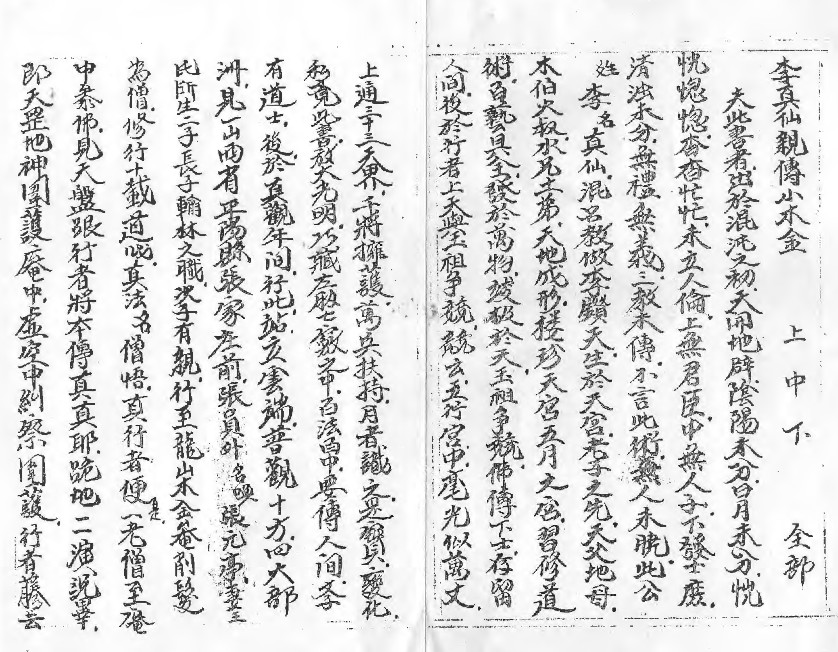 李真仙親傳小木金 上中下 全部
夫此書者出於混沌之初天開地辟陰陽未分日月未分恍
恍惚惚杳杳忙忙未立人倫上無君臣中無人子下發士庶
清濁未分無禮無義三教未傳不言此術無人未曉此公
姓李名真仙混名教做李顯天生於天宮老子之先天父地母
木伯火叔水兄土弟天地成形 天宮五月之宮習修道
術百藝具全發於萬物 於天玉祖爭競佛傳下士存留
人間後於行者上天與玉祖爭競競去五行宮中毫光似萬丈
上通三十三天界千將擁護萬兵扶持月者識之是寶貝變化
和 此書放大光明巧藏左 七竅之中百法百中要傳人間李
有道士後於真觀年間行此站立雲端普觀十方四大部
洲見一山西省平陽縣張家左前張員外名喚張元亭妻王
氏所生二子長子翰林之職次子有親行至龍山木金菴削髮
為僧修行十載道 真法名僧悟真行者便是一老僧至菴
中參佛見天盤張行者將本傳真真耶跪地二演說畢
即天罡地神圍護菴中虛空中糾察圍護行者藤云